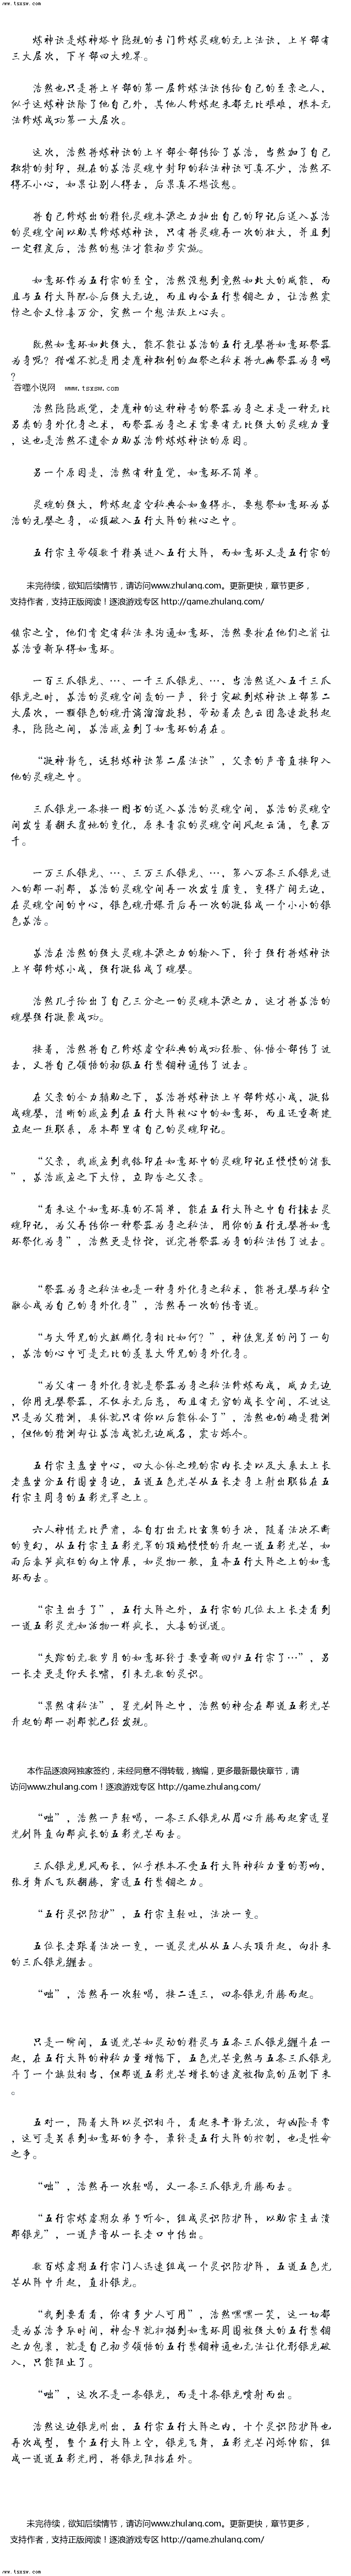 www.tsxsw.com
炼神诀是炼神塔中隐现的专门修炼灵魂的无上法诀，上半部有
三大层次，下半部四大境界。
浩然也只是将上半部的第一层修炼法诀传给自己的至亲之人，
似乎这炼神诀除了他自己外，其他人修炼起来都无比艰难，根本无
法修炼成功第一大层次。
这次，浩然将炼神诀的上半部全部传给了苏浩，当然加了自己
独特的封印，现在的苏浩灵魂中封印的秘法神诀可真不少，浩然不
得不小心，如果让别人得去，后果真不堪设想。
将自己修炼出的精纯灵魂本源之力抽出自己的印记后送入苏浩
的灵魂空间以助其修炼炼神诀，只有将灵魂再一次的壮大，并且到
一定程度后，浩然的想法才能初步实施。
如意环作为五行宗的至宝，浩然没想到竟然如此大的威能，而
且与五行大阵配合后强大无边，而且内含五行禁锢之力，让浩然震
惊之余又惊喜万分，突然一个想法跃上心头。
既然如意环如此强大，能不能让苏浩的五行元婴将如意环祭器
为身呢？指嘴不就是用老魔神独创的血祭之秘术将九幽祭器为身吗
？
吞噬小说网 www.tsxsw.com
浩然隐隐感觉，老魔神的这种神奇的祭器为身之术是一种无比
另类的身外化身之术，而祭器为身之术需要有无比强大的灵魂力量
，这也是浩然不遗余力助苏浩修炼炼神诀的原因。
另一个原因是，浩然有种直觉，如意环不简单。
灵魂的强大，修炼起虚空秘典会如鱼得水，要想祭如意环为苏
浩的元婴之身，必须破入五行大阵的核心之中。
五行宗主带领数千精英进入五行大阵，而如意环又是五行宗的
未完待续，欲知后续情节，请访问www.zhulang.com。更新更快，章节更多，
支持作者，支持正版阅读！逐浪游戏专区 http://game.zhulang.com/
镇宗之宝，他们肯定有秘法来沟通如意环，浩然要抢在他们之前让
苏浩重新取得如意环。
一百三爪银龙、…、一千三爪银龙、…，当浩然送入五千三爪
银龙之时，苏浩的灵魂空间轰的一声，终于突破到炼神诀上部第二
大层次，一颗银色的魂丹滴溜溜旋转，带动着灰色云团急速旋转起
来，隐隐之间，苏浩感应到了如意环的存在。
“凝神静气，运转炼神诀第二层法诀”，父亲的声音直接印入
他的灵魂之中。
三爪银龙一条接一图书的送入苏浩的灵魂空间，苏浩的灵魂空
间发生着翻天覆地的变化，原来青寂的灵魂空间风起云涌，气象万
千。
一万三爪银龙、…、三万三爪银龙、…，第八万条三爪银龙进
入的那一刹那，苏浩的灵魂空间再一次发生质变，变得广阔无边，
在灵魂空间的中心，银色魂丹爆开后再一次的凝结成一个小小的银
色苏浩。
苏浩在浩然的强大灵魂本源之力的输入下，终于强行将炼神诀
上半部修炼小成，强行凝结成了魂婴。
浩然几乎给出了自己三分之一的灵魂本源之力，这才将苏浩的
魂婴强行凝聚成功。
接着，浩然将自己修炼虚空秘典的成功经验、体悟全部传了过
去，又将自己领悟的初级五行禁锢神通传了过去。
在父亲的全力辅助之下，苏浩将炼神诀上半部修炼小成，凝结
成魂婴，清晰的感应到在五行大阵核心中的如意环，而且还重新建
立起一丝联系，原本那里有自己的灵魂印记。
“父亲，我感应到我铭印在如意环中的灵魂印记正慢慢的消散
”，苏浩感应之下大惊，立即告之父亲。
“看来这个如意环真的不简单，能在五行大阵之中自行抹去灵
魂印记，为父再传你一种祭器为身之秘法，用你的五行元婴将如意
环祭化为身”，浩然更是惊诧，说完将祭器为身的秘法传了过去。
“祭器为身之秘法也是一种身外化身之秘术，能将元婴与秘宝
融合成为自己的身外化身”，浩然再一次的传音道。
“与大师兄的火麒麟化身相比如何？”，神使鬼差的问了一句
，苏浩的心中可是无比的羡慕大师兄的身外化身。
“为父有一身外化身就是祭器为身之秘法修炼而成，威力无边
，你用元婴祭器，不仅永无后患，而且有无穷的成长空间，不过这
只是为父猜测，具体就只有你以后能体会了”，浩然也的确是猜测
，但他的猜测却让苏浩成就无边威名，震古烁今。
五行宗主盘坐中心，四大合体之境的宗内长老以及大乘太上长
老盘坐分五行围坐身边，五道五色光芒从五长老身上射出联结在五
行宗主周身的五彩光罩之上。
六人神情无比严肃，各自打出无比玄奥的手决，随着法决不断
的变幻，从五行宗主五彩光罩的顶端慢慢的升起一道五彩光芒，如
雨后春笋疯狂的向上伸展，如灵物一般，直奔五行大阵之上的如意
环而去。
“宗主出手了”，五行大阵之外，五行宗的几位太上长老看到
一道五彩灵光如活物一样疯长，大喜的说道。
“失踪的无数岁月的如意环终于要重新回归五行宗了…”，另
一长老更是仰天长啸，引来无数的灵识。
“果然有秘法”，星光剑阵之中，浩然的神念在那道五彩光芒
升起的那一刹那就已经发现。
本作品逐浪网独家签约，未经同意不得转载，摘编，更多最新最快章节，请
访问www.zhulang.com！逐浪游戏专区 http://game.zhulang.com/
“咄”，浩然一声轻喝，一条三爪银龙从眉心升腾而起穿透星
光剑阵直向那疯长的五彩光芒而去。
三爪银龙见风而长，似乎根本不受五行大阵神秘力量的影响，
张牙舞爪飞跃翻腾，穿透五行禁锢之力。
“五行灵识防护”，五行宗主轻吐，法决一变。
五位长老跟着法决一变，一道灵光从从五人头顶升起，向扑来
的三爪银龙缠去。
“咄”，浩然再一次轻喝，接二连三，四条银龙升腾而起。
只是一瞬间，五道光芒如灵动的精灵与五条三爪银龙缠斗在一
起，在五行大阵的神秘力量增幅下，五色光芒竟然与五条三爪银龙
斗了一个旗鼓相当，但那道五彩光芒增长的速度被彻底的压制下来
。
五对一，隔着大阵以灵识相斗，看起来平静无波，却凶险异常
，这可是关系到如意环的争夺，兼给是五行大阵的控制，也是性命
之争。
“咄”，浩然再一次轻喝，又一条三爪银龙升腾而去。
“五行宗炼虚期众弟子听令，组成灵识防护阵，以助宗主击溃
那银龙”，一道声音从一长老口中传出。
数百炼虚期五行宗门人迅速组成一个灵识防护阵，五道五色光
芒从阵中升起，直扑银龙。
“我到要看看，你有多少人可用”，浩然嘿嘿一笑，这一切都
是为苏浩争取时间，神念早就扫描到如意环周围被强大的五行禁锢
之力包裹，就是自己初步领悟的五行禁锢神通也无法让化形银龙破
入，只能阻止了。
“咄”，这次不是一条银龙，而是十条银龙喷射而出。
浩然这边银龙刚出，五行宗五行大阵之内，十个灵识防护阵也
再次成型，整个五行大阵上空，银龙飞舞，五彩光芒闪烁伸缩，组
成一道道五彩光网，将银龙阻挡在外。
未完待续，欲知后续情节，请访问www.zhulang.com。更新更快，章节更多，
支持作者，支持正版阅读！逐浪游戏专区 http://game.zhulang.com/
www.tsxsw.com